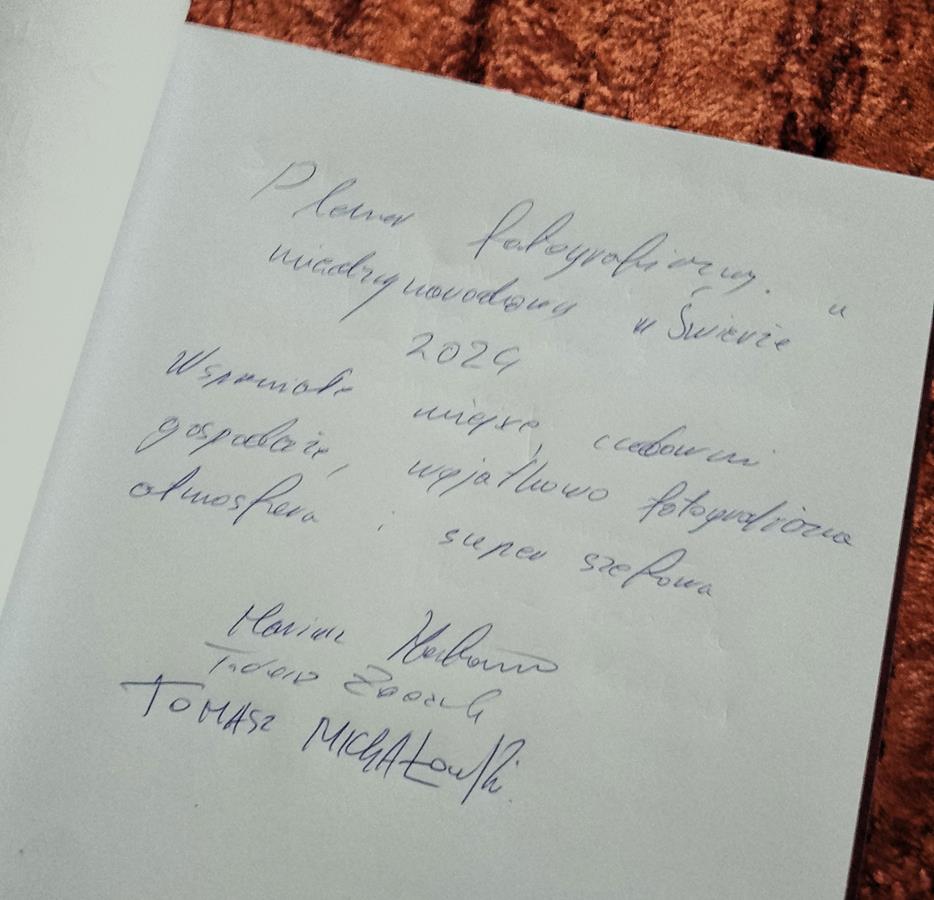 Plener fotograficzny
międzynarodowy "Świerże"
2024
Wspaniałe miejsce, cudowni
gospodarze, wyjątkowo fotograficzna
atmosfera i super szefowa
Marian
Tadeusz
TOMASZ MICHAŁowski